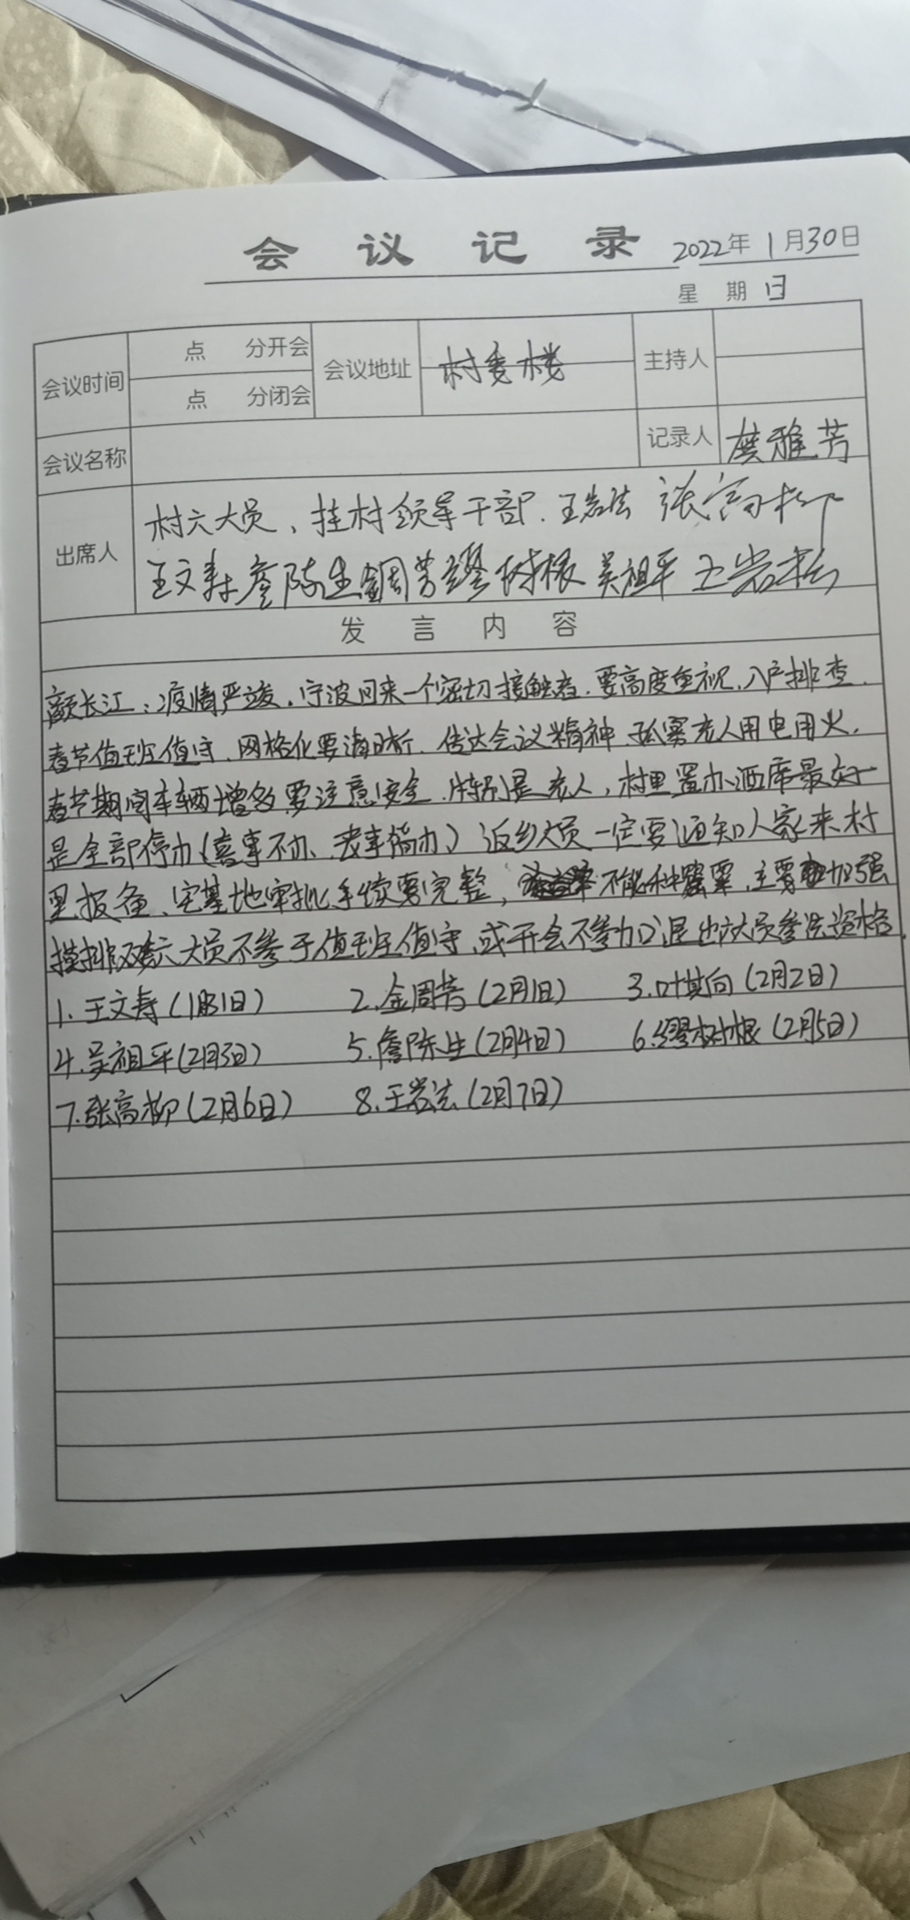 会议记录 2022年1月30日
星期日
会议时间 点 分开会 会议地址 村委楼 主持人
点 分闭会
会议名称 记录人 雅芳
出席人 村六大员、挂村领导干部、王岩法 张高柳
王文寿 陈生 金周芳 缪树根 吴祖平 王岩松
发言内容
颜长江：疫情严峻，宁波回来一个密切接触者，要高度重视，入户排查，
春节值班值守，网格化要清晰，传达会议精神，孤寡老人用电用火，
春节期间车辆增多要注意安全，特别是老人，村里置办酒席最好
是全部停办（喜事不办、丧事简办）返乡人员一定要通知人家来村
里报备，宅基地审批手续要完整，不能种罂粟，主要加强
摸排，六大员不参于值班值守，或开会不参加，退出六大员参选资格。
1.王文寿（1月31日） 2.金周芳（2月1日） 3.叶其向（2月2日）
4.吴祖平（2月3日） 5.詹陈生（2月4日） 6.缪树根（2月5日）
7.张高柳（2月6日） 8.王岩法（2月7日）